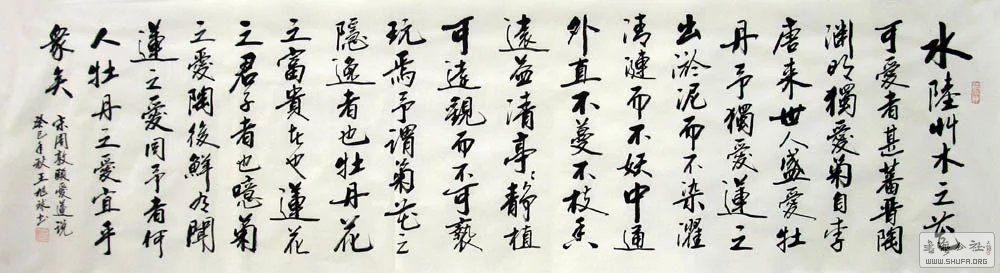 水陸艸木之花
可愛者甚蕃晋陶
渊明獨愛菊自李
唐来世人盛愛牡
丹予獨愛蓮之
出淤泥而不染濯
清漣而不妖中通
外直不蔓不枝香
遠益清亭〻静植
可遠觀而不可褻
玩焉予謂菊花之
隱逸者也牡丹花
之富貴者也蓮花
之君子者也噫菊
之愛陶後鮮有聞
蓮之愛同予者何
人牡丹之愛宜乎
衆矣
宋周敦頤愛蓮說
癸巳年秋王旭
书法公社
WWW.SHUFA.ORG